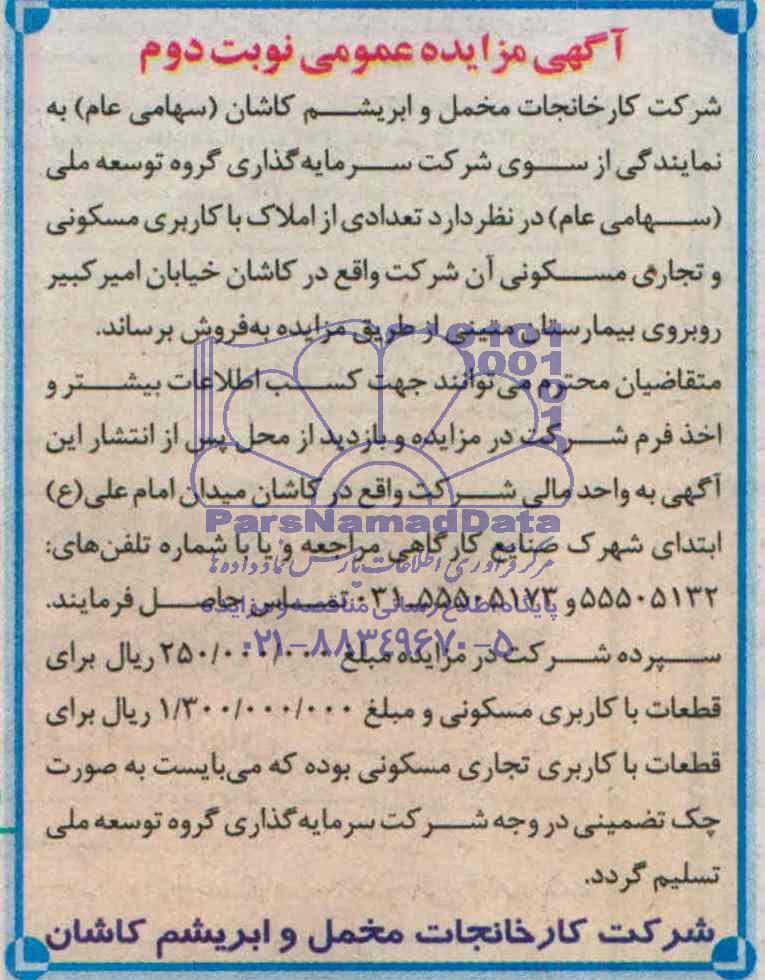 آگهی مزایده عمومی نوبت دوم
شرکت کارخانجات مخمل و ابریشم کاشان (سهامی عام) به
نمایندگی از سوی شرکت سرمایه‌گذاری گروه توسعه ملی
(سهامی عام) در نظر دارد تعدادی از املاک با کاربری مسکونی
و تجاری مسکونی آن شرکت واقع در کاشان خیابان امیرکبیر
روبروی بیمارستان متینی از طریق مزایده به‌فروش برساند.
متقاضیان محترم می‌توانند جهت کسب اطلاعات بیشتر و
اخذ فرم شرکت در مزایده و بازدید از محل پس از انتشار این
آگهی به واحد مالی شرکت واقع در کاشان میدان امام علی(ع)
ابتدای شهرک صنایع کارگاهی مراجعه و یا با شماره تلفن‌های:
۵۵۵۰۵۱۳۲ و ۵۵۵۰۵۱۷۳-۰۳۱ تماس حاصل فرمایند.
سپرده شرکت در مزایده مبلغ ۲۵۰/۰۰۰/۰۰۰ ریال برای
قطعات با کاربری مسکونی و مبلغ ۱/۳۰۰/۰۰۰/۰۰۰ ریال برای
قطعات با کاربری تجاری مسکونی بوده که می‌بایست به صورت
چک تضمینی در وجه شرکت سرمایه‌گذاری گروه توسعه ملی
تسلیم گردد.
شرکت کارخانجات مخمل و ابریشم کاشان
ParsNamadData
مرکز فرآوری اطلاعات پارس نماد داده‌ها
پایگاه اطلاع رسانی مناقصه و مزایده
۰۲۱-۸۸۳۴۹۶۷۰-۵